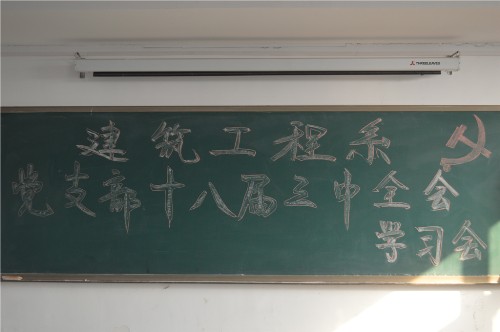 建筑工程系
党支部十八届三中全会
学习会